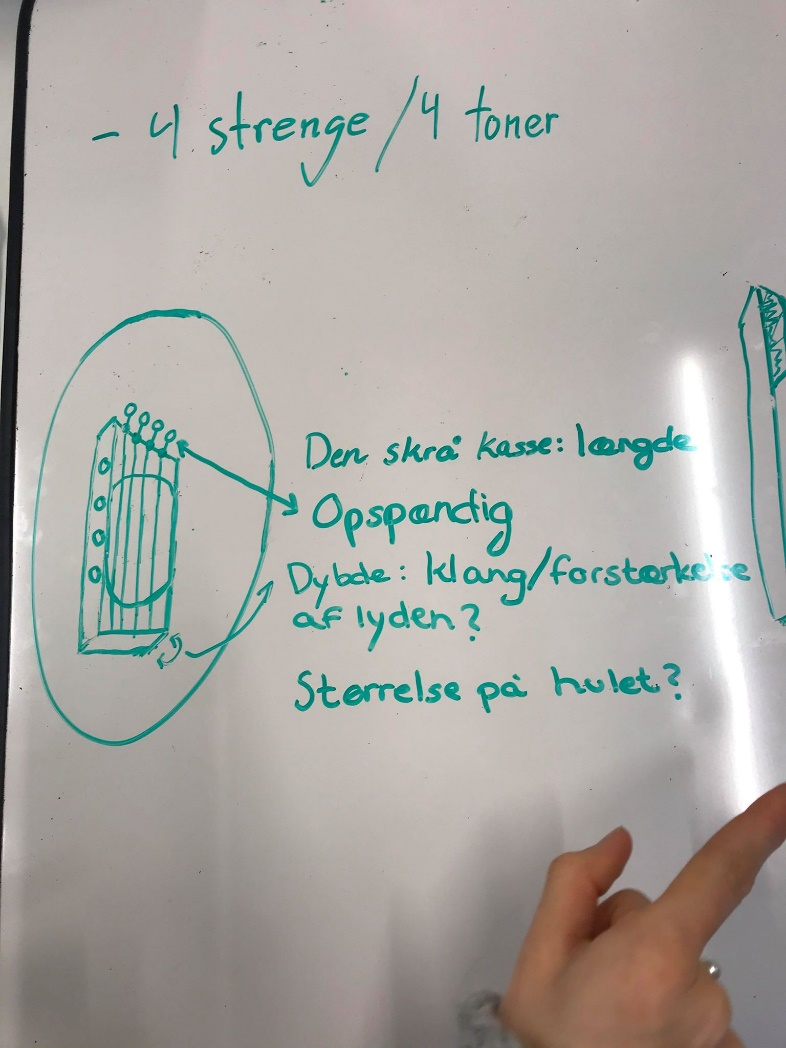 - 4 strenge/4 toner
Den skrå kasse: længde
Opspændig
Dybde: klang/forstærkelse
af lyden?
Størrelse på hulet?